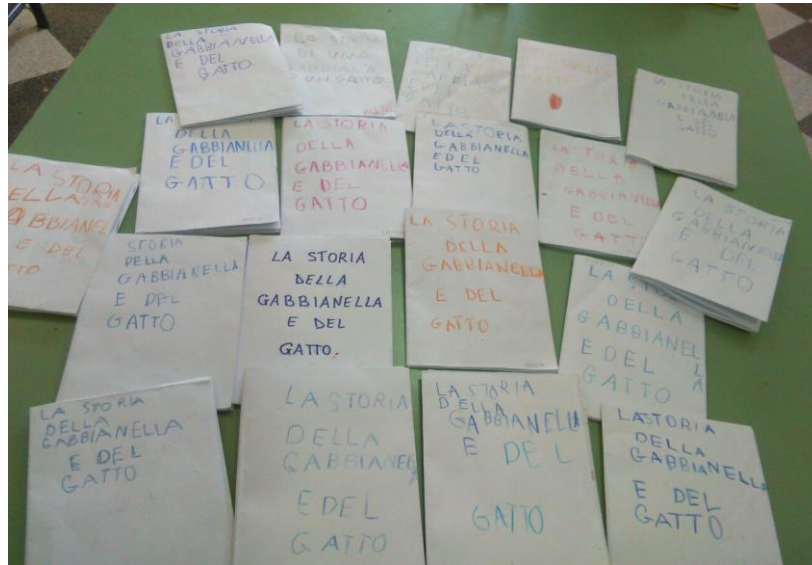 LA STORIA
DELLA
GABBIANELLA
E DEL
GATTO
LA STORIA
DI UNA
GABBIANELLA
UN GATTO
DELLA
GABBIANELLA
E DEL
GATTO
LA STORIA
DELLA
GABBIANELLA
E DEL
GATTO
DELLA
GABBIANELLA
E DEL
GATTO
LA STORIA
DELLA
GABBIANELLA
E DEL
GATTO
LA STORIA
DELLA
GABBIANELLA
E DEL
GATTO
DELLA
GABBIANELLA
E DEL
GATTO
LA STORIA
E DEL
LA STORIA
DELLA
GABBIANELLA
E DEL
GATTO
STORIA
DELLA
GABBIANELLA
E DEL
GATTO
LA STORIA
DELLA
GABBIANELLA
E DEL
GATTO.
LA STORIA
DELLA
GABBIANELLA
E DEL
GATTO
DELLA
GABBIANELLA
E DEL
GATTO
LA STORIA
DELLA
GABBIANELLA
E DEL
GATTO
LA STORIA
DELLA
GABBIANELLA
E DEL
GATTO
LA STORIA
DELLA
GABBIANELLA
E DEL
GATTO
LA STORIA
DELLA
GABBIANELLA
E DEL
GATTO